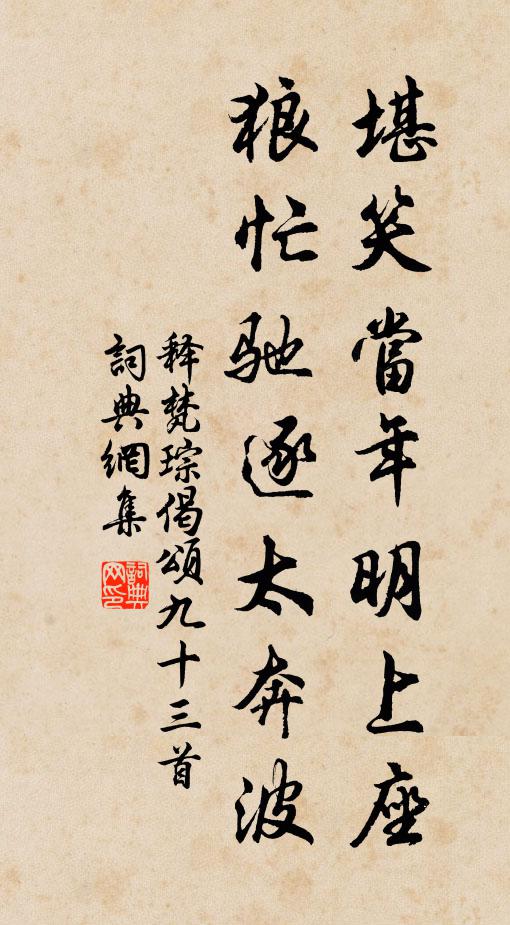 堪笑當年明上座
狼忙驰逐太奔波
释梵琮偈頌九十三首
詞典網集
詞典网印